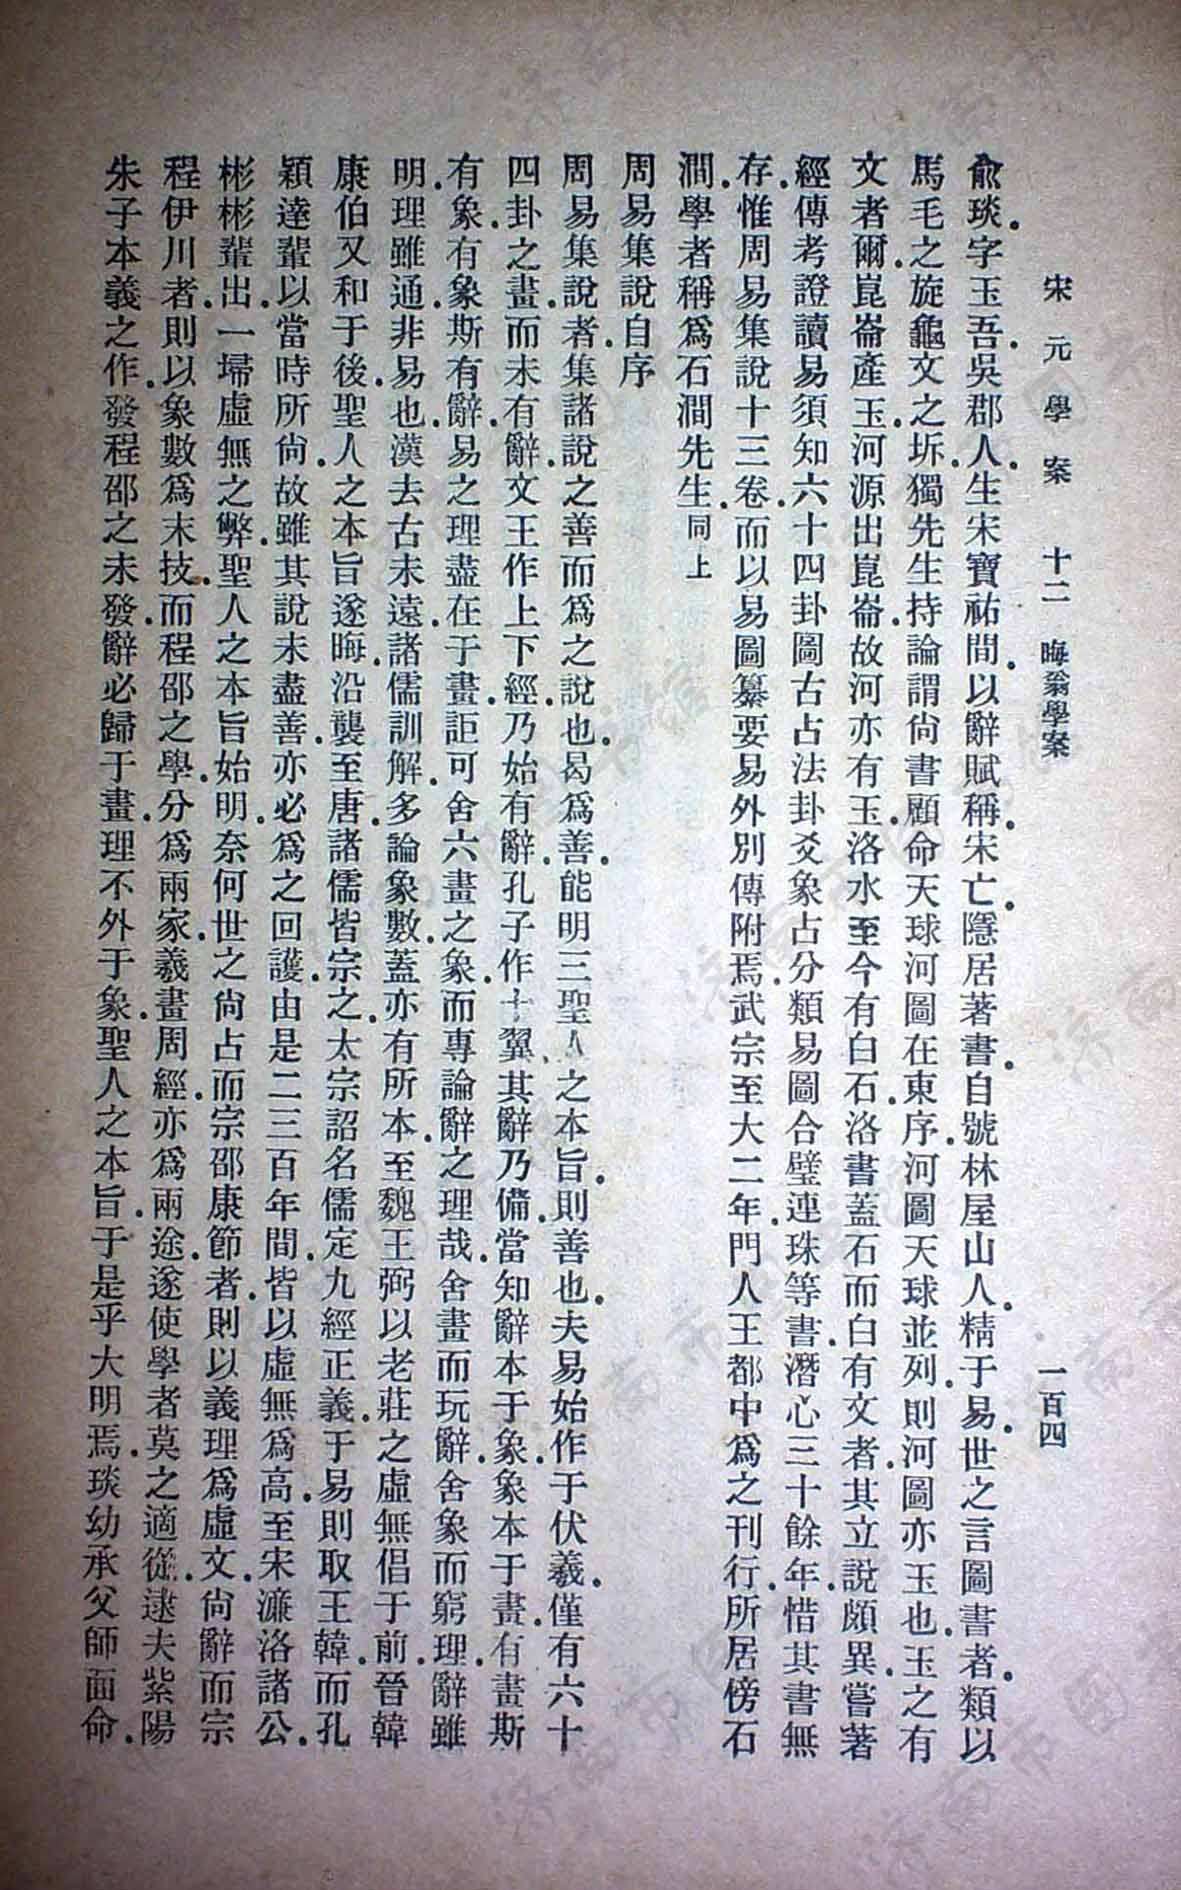 宋元學案 十二 晦翁學案 一百四
俞琰字玉吾吳郡人生宋寶祐間以辭賦稱宋亡隱居著書自號林屋山人精于易世之言圖書者類以
馬毛之旋龜文之坼獨先生持論謂尚書顧命天球河圖在東序河圖天球並列則河圖亦玉也玉之有
文者爾崑崙產玉河源出崑崙故河亦有玉洛水至今有白石洛書蓋石而白有文者其立說頗異嘗著
經傳考證讀易須知六十四卦圖古占法卦爻象占分類易圖合璧連珠等書潛心三十餘年惜其書無
存惟周易集說十三卷而以易圖纂要易外別傳附焉武宗至大二年門人王都中爲之刊行所居傍石
澗學者稱爲石澗先生同上
周易集說自序
周易集說者集諸說之善而爲之說也曷爲善能明三聖人之本旨則善也夫易始作于伏羲僅有六十
四卦之畫而未有辭文王作上下經乃始有辭孔子作十翼其辭乃備當知辭本于象象本于畫有畫斯
有象有象斯有辭易之理盡在于畫詎可舍六畫之象而專論辭之理哉舍畫而玩辭舍象而窮理辭雖
明理雖通非易也漢去古未遠諸儒訓解多論象數蓋亦有所本至魏王弼以老莊之虛無倡于前晉韓
康伯又和于後聖人之本旨遂晦沿襲至唐諸儒皆宗之太宗詔名儒定九經正義于易則取王韓而孔
穎達輩以當時所尚故雖其說未盡善亦必爲之回護由是二三百年間皆以虛無爲高至宋濂洛諸公
彬彬輩出一埽虛無之弊聖人之本旨始明奈何世之尚占而宗邵康節者則以義理爲虛文尚辭而宗
程伊川者則以象數爲末技而程邵之學分爲兩家羲畫周經亦爲兩途遂使學者莫之適從逮夫紫陽
朱子本義之作發程邵之未發辭必歸于畫理不外于象聖人之本旨于是乎大明焉琰幼承父師面命